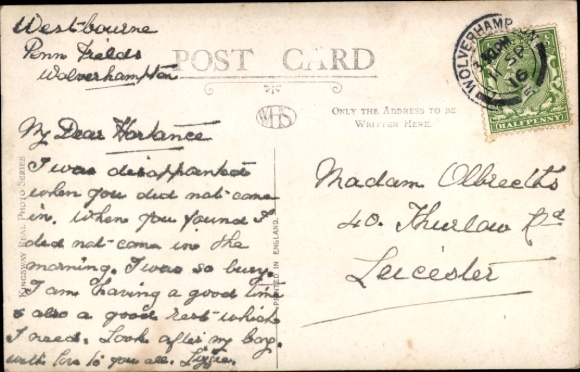 Westbourne
Penn Fields
Wolverhampton
POST CARD
WHS
ONLY THE ADDRESS TO BE
WRITTEN HERE.
WOLVERHAMPTON
16
HALFPENNY
My Dear Hortance
I was disappointed
when you did not come
in. When you found I
did not come in the
morning. I was so busy.
I am having a good time
& also a good rest which
I need. Look after my boy.
with love to you all. Lizzie.
KINGSWAY REAL PHOTO SERIES
PRINTED IN ENGLAND.
Madam Olbrechts
40. Thurlow Rd
Leicester